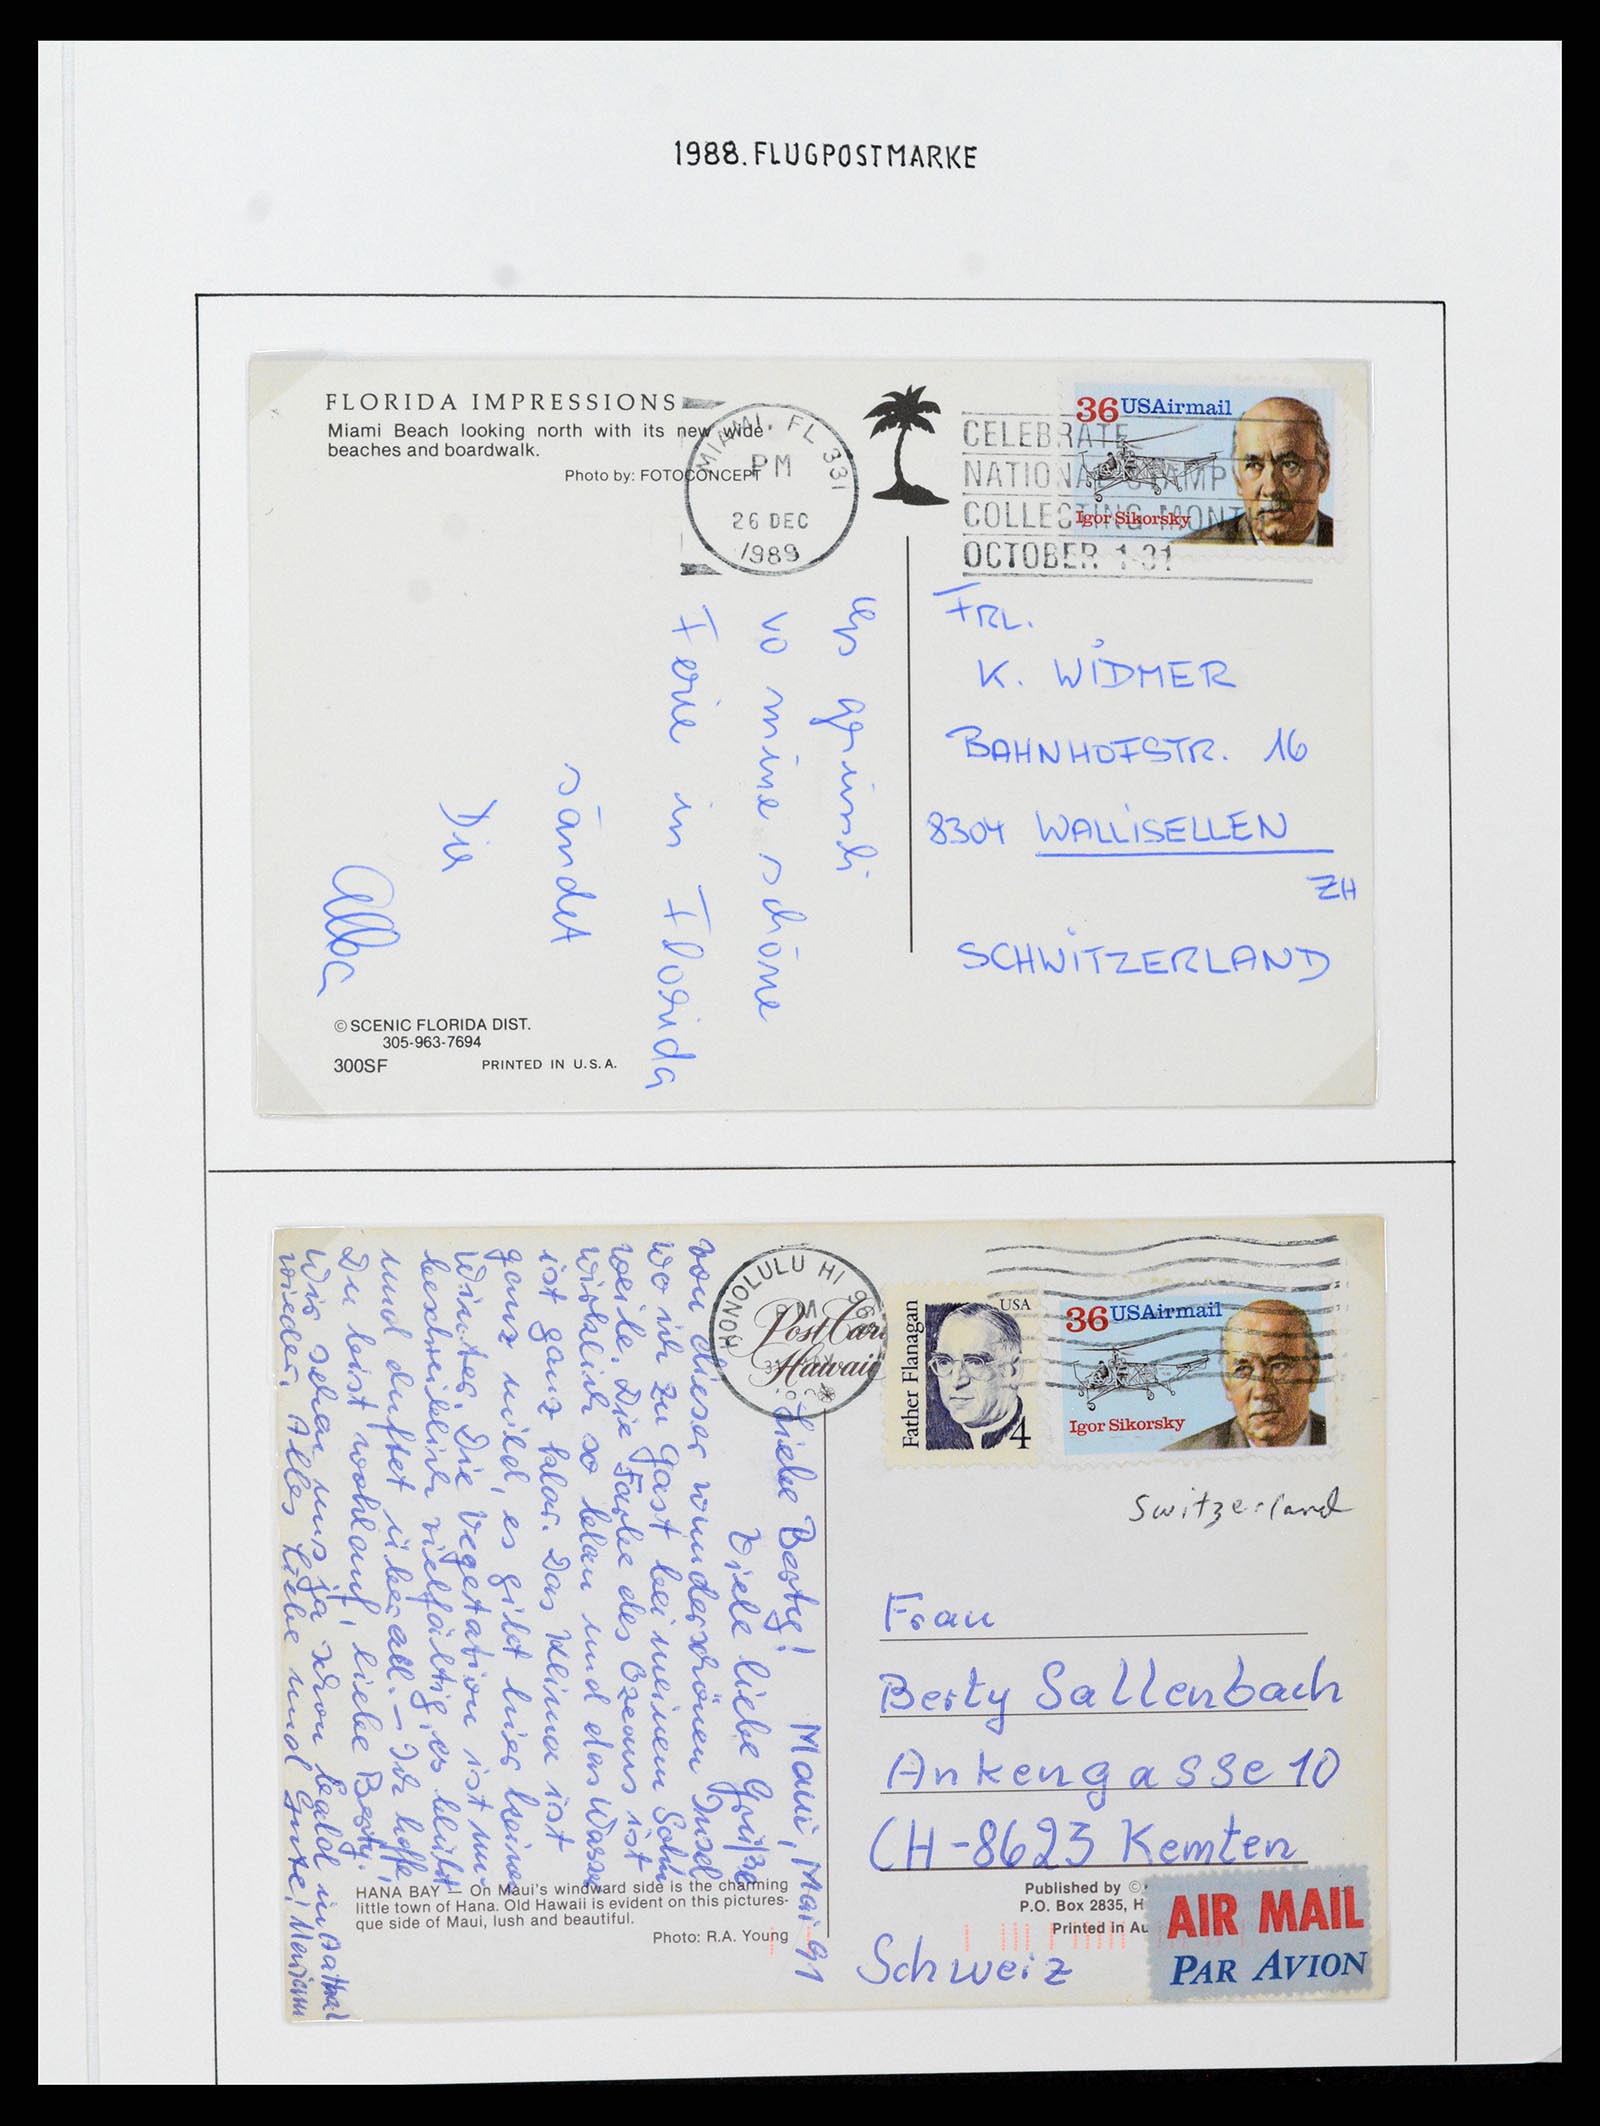 1988. FLUGPOSTMARKE
FLORIDA IMPRESSIONS
Miami Beach looking north with its new wide
beaches and boardwalk.
Photo by: FOTOCONCEPT
MIAMI, FL 331
PM
26 DEC
1989
CELEBRATE
NATIONAL STAMP
COLLECTING MONTH
OCTOBER 1-31
36 USAirmail
Igor Sikorsky
grüessli
vo mine schöne
Ferie in Florida
sändet
Die
FRL.
K. WIDMER
BAHNHOFSTR. 16
8304 WALLISELLEN
ZH
SCHWITZERLAND
© SCENIC FLORIDA DIST.
305-963-7694
300SF PRINTED IN U.S.A.
HONOLULU HI 96
PM
Post Car
Hawaii
Father Flanagan
USA
4
36 USAirmail
Igor Sikorsky
Maui, Mai 91
Liebe Berty!
Viele liebe Grüße
von dieser wunderschönen Insel
wo ich zu Gast bei meinem Sohn
weile. Die Farbe des Ozeans ist
wirklich so blau und das Wasser
ist ganz klar. Das Klima ist
ganz mild, es gibt hier keinen
Winter. Die Vegetation ist un-
beschreiblich vielfältig, es blüht
und duftet überall. – Ich hoffe,
Du bist wohlauf, liebe Berty.
Wir sehen uns ja schon bald in
wieder. Alles Liebe und Gute!
Switzerland
Frau
Berty Sallenbach
Ankengasse 10
CH-8623 Kemten
Schweiz
HANA BAY — On Maui's windward side is the charming
little town of Hana. Old Hawaii is evident on this pictures-
que side of Maui, lush and beautiful.
Photo: R.A. Young
Published by ©
P.O. Box 2835, H
Printed in Au
AIR MAIL
PAR AVION